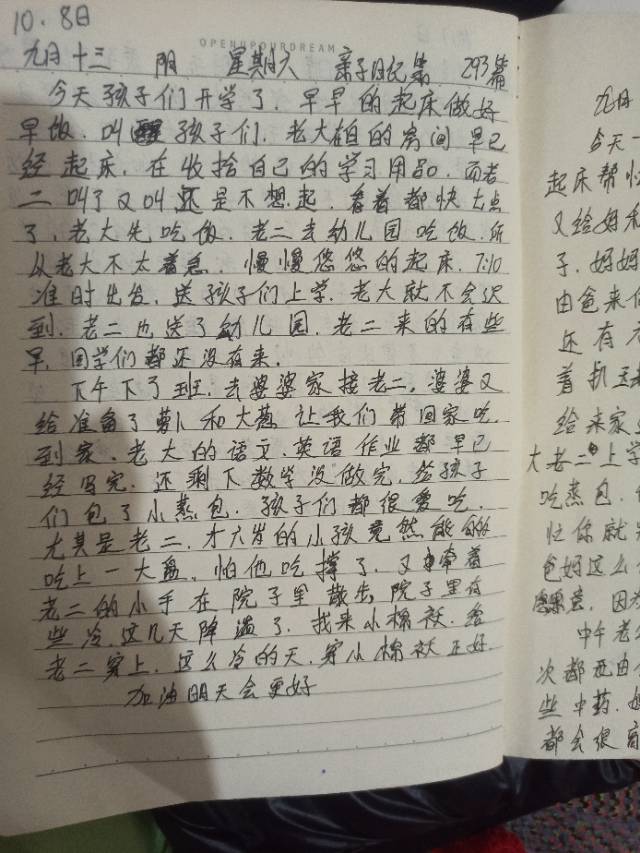 10.8日
OPEN UP OUR DREAM
九月十三 阴 星期六 亲子日记第293篇
今天孩子们开学了.早早的起床做好
早饭.叫醒孩子们.老大在自己的房间早已
经起床.在收拾自己的学习用品.而老
二叫了又叫还是不想起.看着都快七点
了,老大先吃饭.老二去幼儿园吃饭.所
以老大不太着急.慢慢悠悠的起床.7:10
准时出发.送孩子们上学.老大就不会迟
到.老二也送了幼儿园.老二来的有些
早.同学们都还没有来.
下午下了班.去婆婆家接老二,婆婆又
给准备了萝卜和大葱让我们带回家吃.
到家.老大的语文.英语作业都早已
经写完.还剩下数学没做完,给孩子
们包了小蒸包.孩子们都很爱吃.
尤其是老二.才六岁的小孩竟然能够
吃上一大盘.怕他吃撑了.又牵着
老二的小手在院子里散步,院子里有
些冷.这几天降温了.找来小棉袄.给
老二穿上.这么冷的天.穿小棉袄正好.
加油明天会更好
九月
今天一
起床帮忙
又给好
子.妈妈
由爸来
还有
着
给来家
大老二上学
吃蒸包.
忙你就
爸好这么
因为
中午老
次都要由
些中药.
都会很